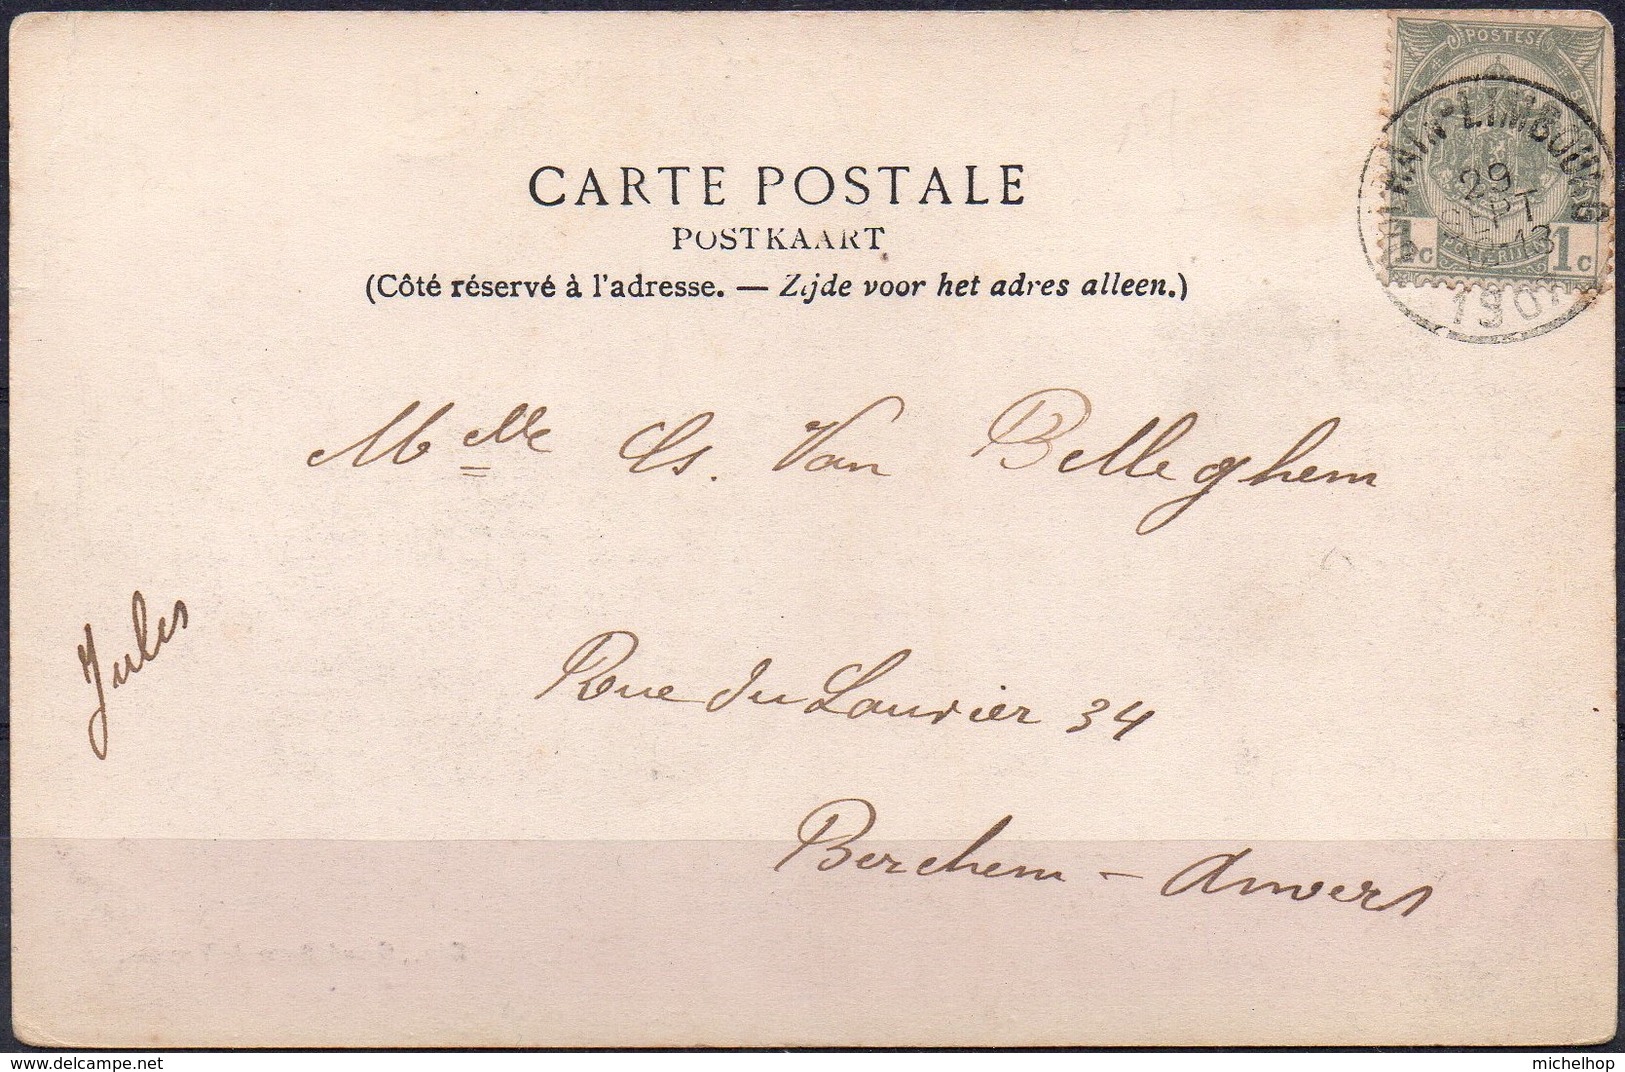 CARTE POSTALE
POSTKAART
(Côté réservé à l'adresse. — Zijde voor het adres alleen.)
POSTES
LIMBOURG
29
SEPT
13
1c 1c
190
Melle Cs. Van Belleghem
Jules
Rue du Laurier 34
Berchem - Anvers
delcampe.net
michelhop